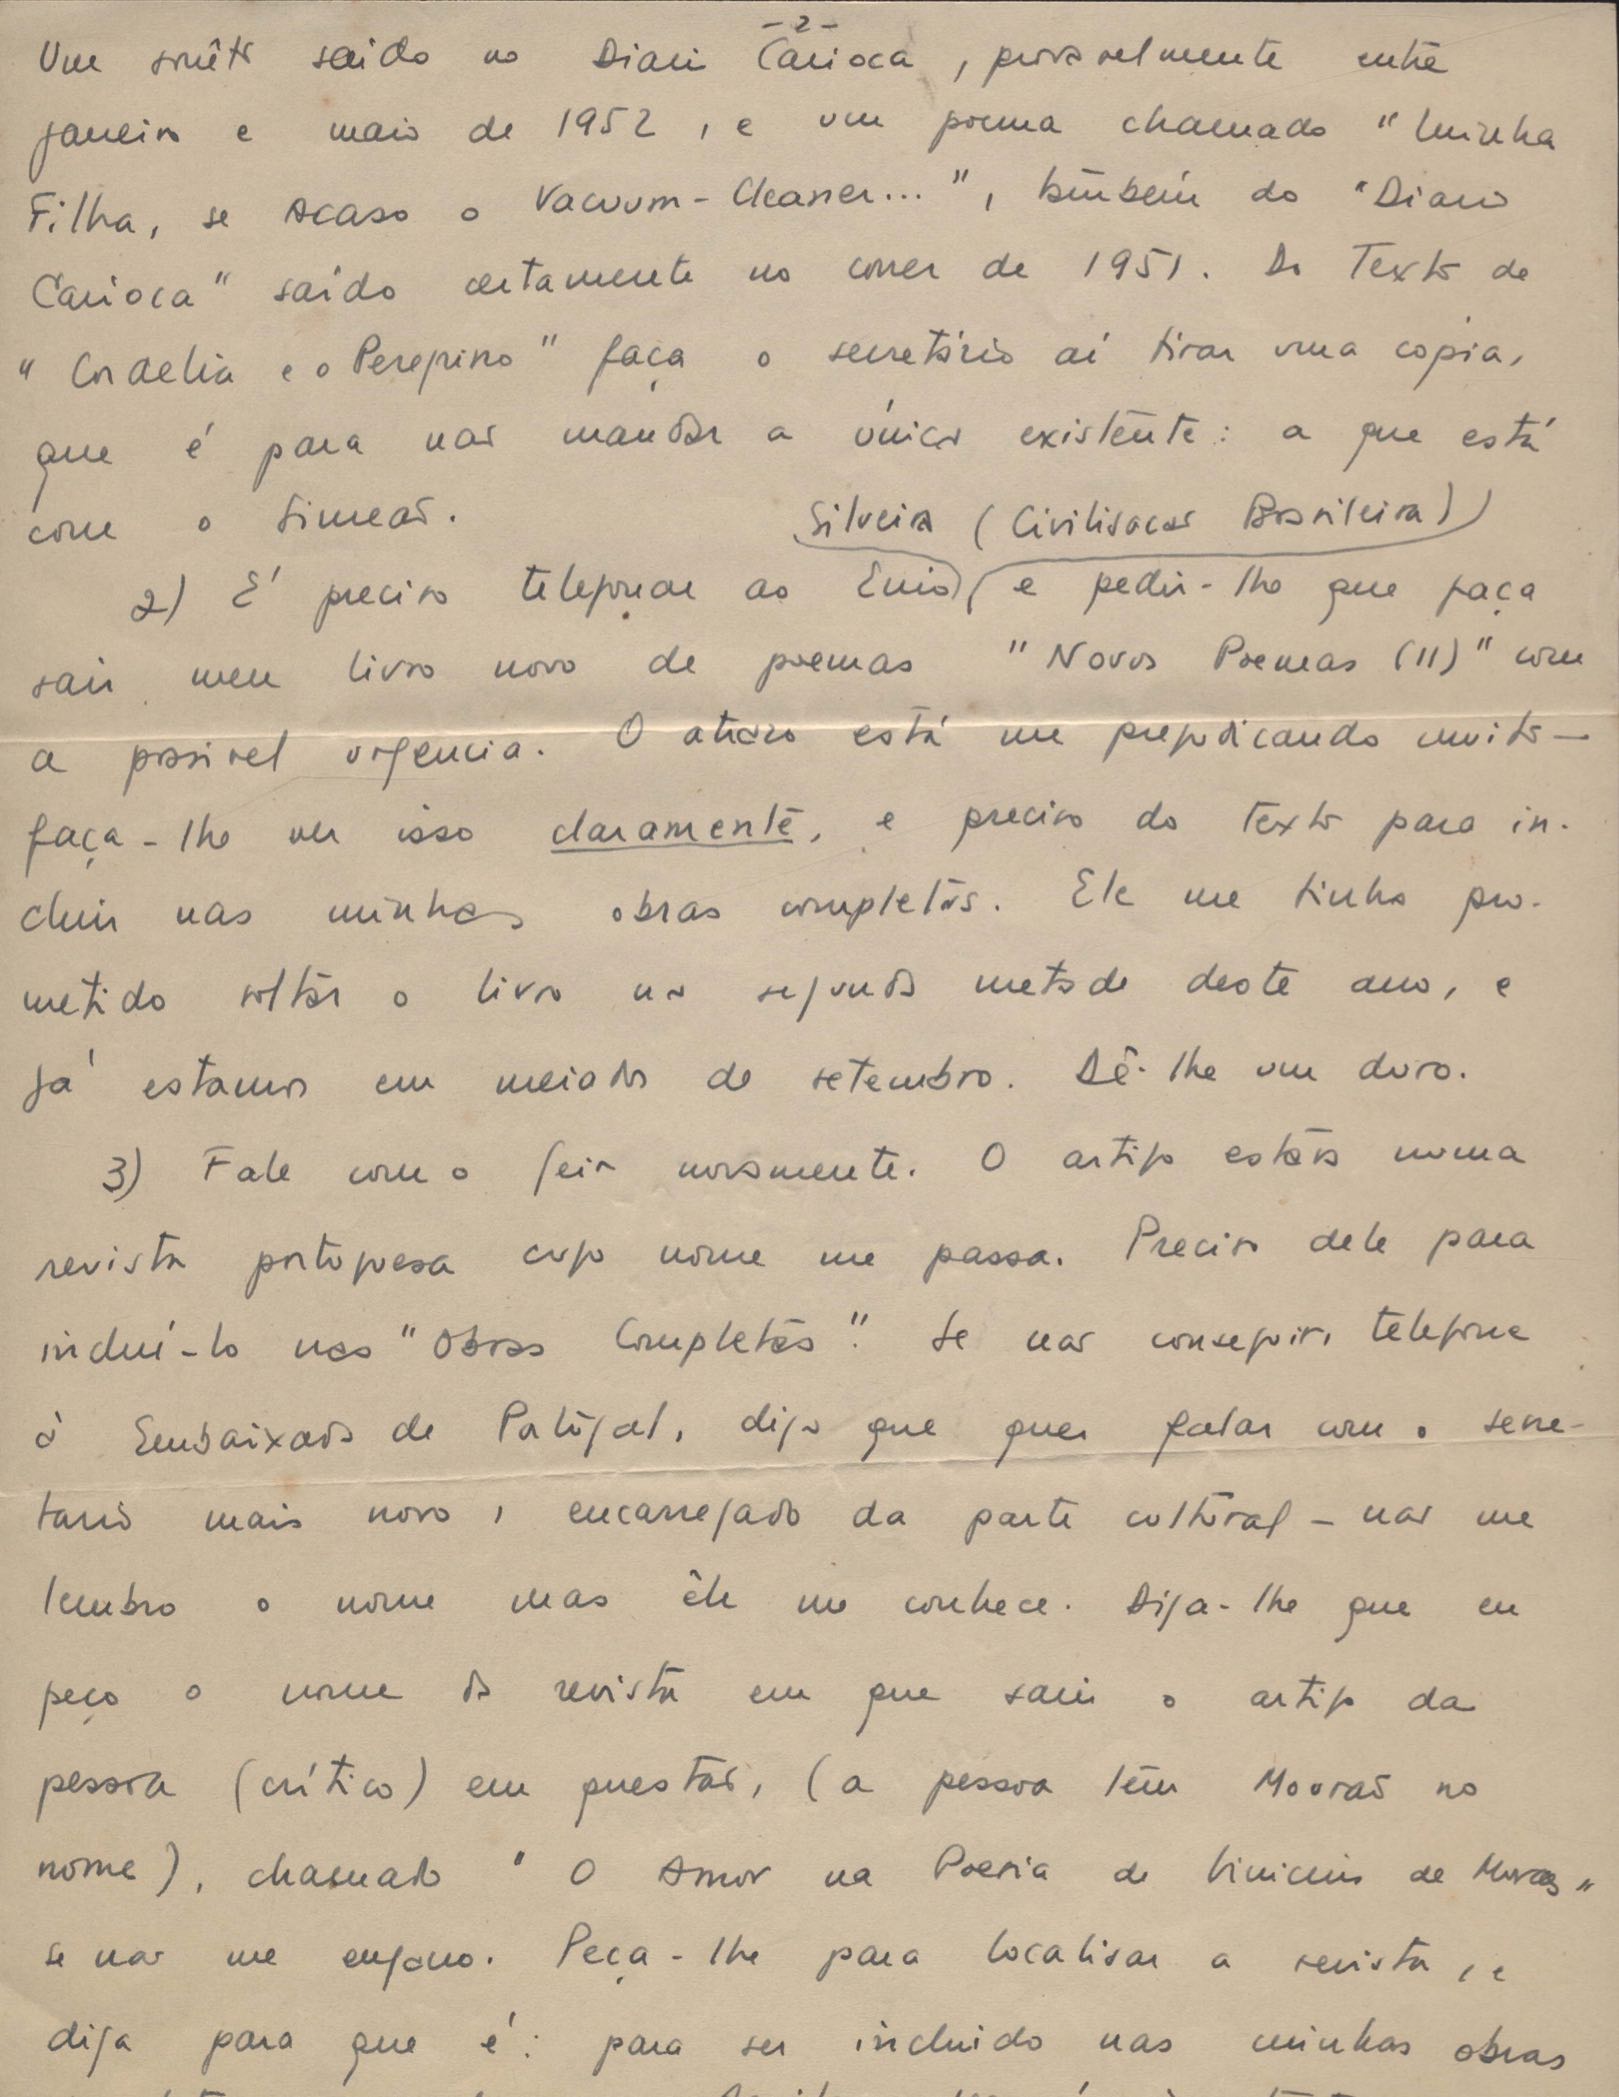 -2-
Um sonêto saido no Diario Carioca, provavelmente entre
janeiro e maio de 1952, e um poema chamado "Minha
Filha, se Acaso o Vacuum-Cleaner...", também do "Diario
Carioca" saído certamente no correr de 1951. Do Texto de
"Cordelia e o Peregrino" faça o secretário aí tirar uma copia,
que é para não mandar a única existente: a que está
com o Simeão.
Silveira (Civilisação Brasileira)
2) É preciso telefonar ao Enio e pedir-lhe que faça
sair meu livro novo de poemas "Novos Poemas (II)" com
a possivel urgencia. O atrazo está me prejudicando muito —
faça-lhe ver isso claramente, e preciso do texto para in-
cluir nas minhas obras completas. Ele me tinha pro-
metido soltar o livro na segunda metade deste ano, e
já estamos em meiados de setembro. Dê-lhe um duro.
3) Fale com o novamente. O artigo estava numa
revista portuguesa cujo nome me passa. Preciso dele para
incluí-lo nas "Obras Completas". Se não conseguir, telefone
à Embaixada de Portugal, diga que quer falar com o secre-
tario mais novo, encarregado da parte cultural — não me
lembro o nome mas êle me conhece. Diga-lhe que eu
peço o nome da revista em que saiu o artigo da
pessoa (crítico) em questão, (a pessoa tem Mourão no
nome), chamado "O Amor na Poesia de Vinicius de Moraes"
se não me engano. Peça-lhe para localisar a revista, e
diga para que é: para ser incluido nas minhas obras